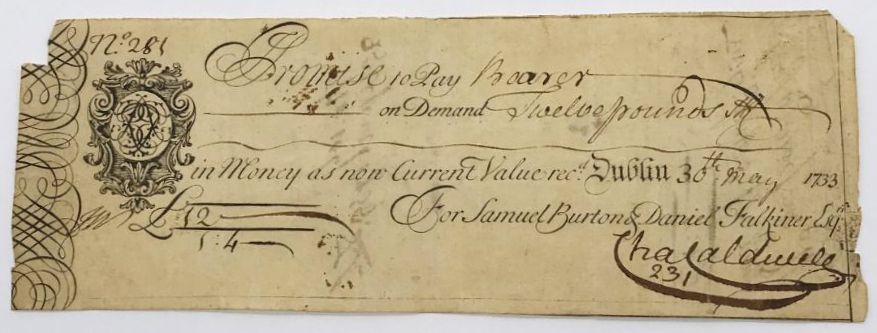 No. 281
I Promise to Pay Bearer
on Demand Twelve pounds
in Money as now Current Value recd. Dublin 30th May 1733
£ 12
1:4
For Samuel Burton & Daniel Falkiner Esqr
Cha Caldwell
231